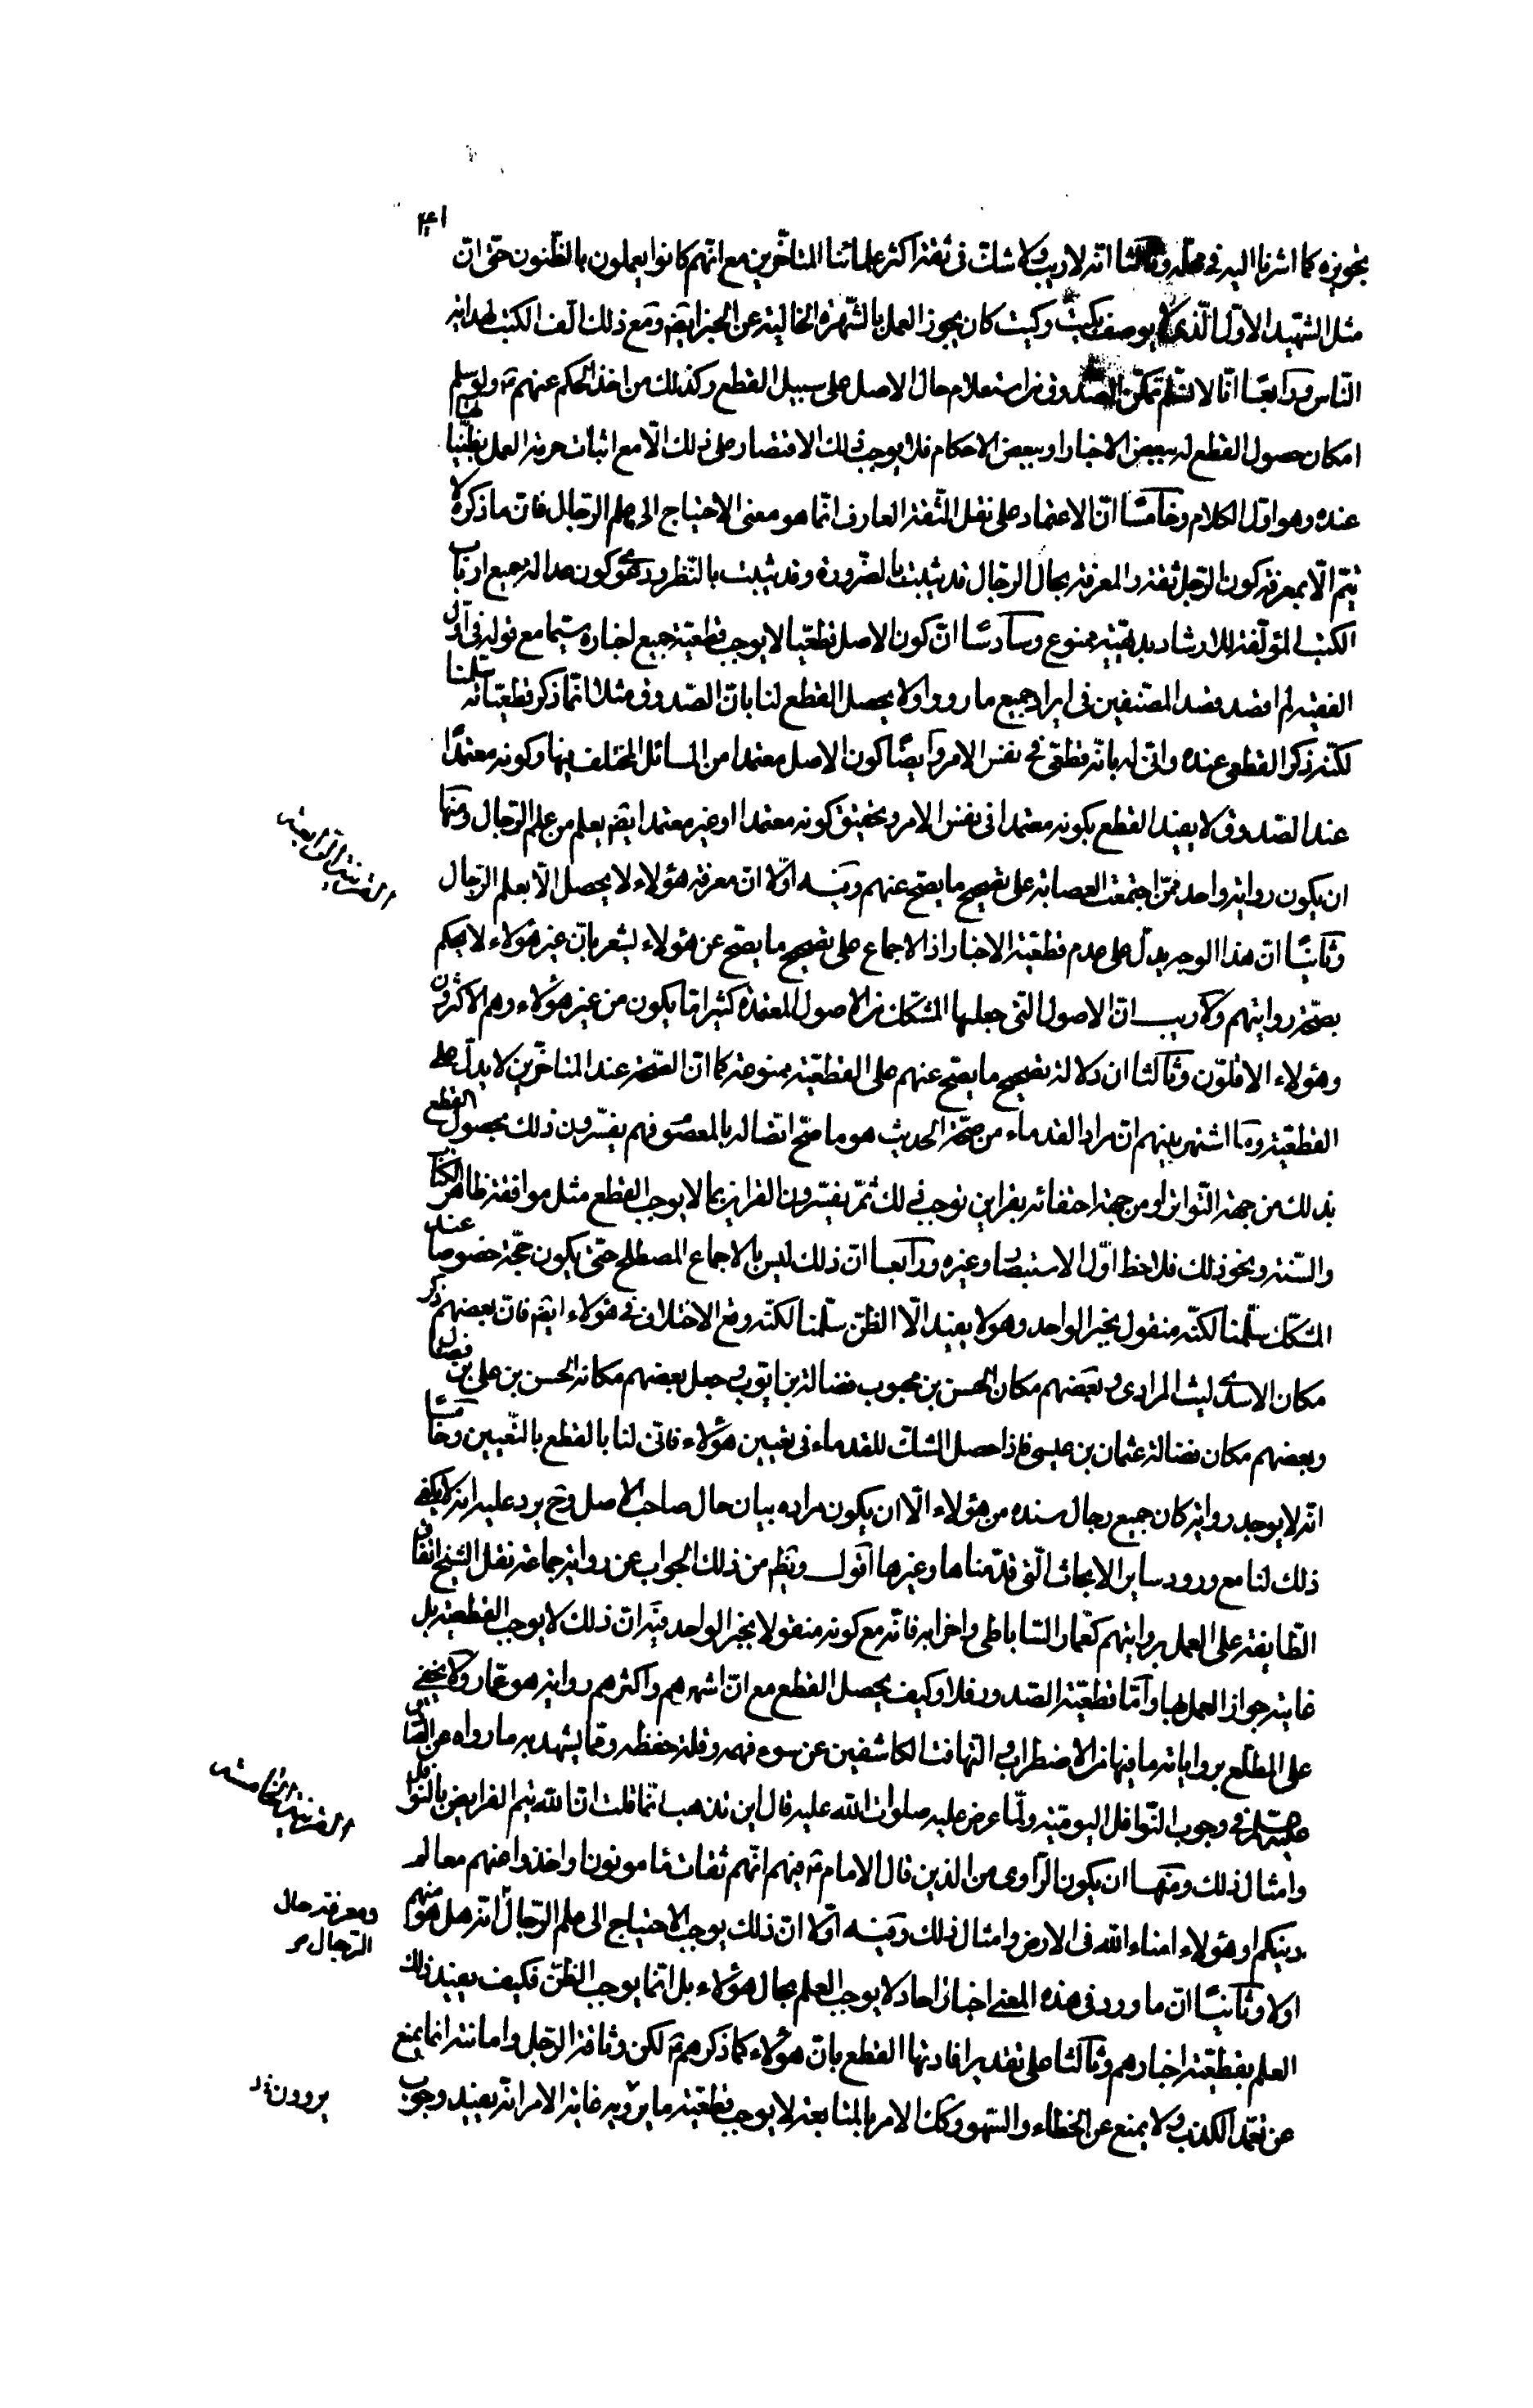 ۴۱
بتجويزه كما اشرنا اليه في محله وثالثا انّه لا ريب ولا شكّ فى ثقة اكثر علمائنا المتاخّرين مع انّهم كانوا يعملون بالظّنون حتّى انّ
مثل الشّهيد الاوّل الّذى لا يوصف بكيت وكيت كان يجوز العمل بالشّهرة الخالية عن الخبر ايضا ومع ذلك الّف الكتب لهداية
النّاس ورابعًا انّا لا نسلّم تمكّن الصّدوق من استعلام حال الاصل على سبيل القطع وكذلك من اخذ الحكم عنهم ع ولو سلم
امكان حصول القطع له ببعض الاخبار او ببعض الاحكام فلا يوجب ذلك الاقتصار على ذلك الّا مع اثبات حرمة العمل بظنّياتها
عنده وهو اوّل الكلام وخامسًا انّ الاعتماد على نقل الثّقة العارف انّما هو معنى الاحتياج الى علم الرّجال فان ما ذكره لا
يتمّ الّا بمعرفة كون الرّجل ثقة والمعرفة بحال الرجال قد يثبت بالضّرورة وقد يثبت بالنّظر ودعوى كون عدالة جميع ارباب
الكتب المؤلّفة للارشاد بديهيّة ممنوع وسادسًا انّ كون الاصل قطعيّا لا يوجب قطعيّة جميع اخباره سيّما مع قوله فى اوّل
الفقيه لم اقصد قصد المصنّفين فى ايراد جميع ما رووا ولا يحصل القطع لنا بانّ الصّدوق مثلا انّما ذكر قطعيّاته سلّمنا
لكنّه ذكر القطعى عنده وانّى له بانّه قطعىّ فى نفس الامر وايضًا كون الاصل معتمدا من المسائل المختلف فيها وكونه معتمدًا
عند الصّدوق لا يفيد القطع بكونه معتمدا فى نفس الامر وتحقيق كونه معتمدا او غير معتمد ايضا يعلم من علم الرّجال ومنها
القرينة الرابعة
ان يكون رواية واحد ممّن اجتمعت العصابة على تصحيح ما يصحّ عنهم وفيه اوّلا ان معرفة هؤلاء لا يحصل الّا بعلم الرّجال
وثانيًا انّ هذا الوجه يدلّ على عدم قطعيّة الاخبار اذ الاجماع على تصحيح ما يصحّ عن هؤلاء يشعر بانّ غير هؤلاء لا يحكم
بصحّة روايتهم ولا ريب انّ الاصول التى جعلها المشكّك من الاصول المعتمدة كثيرا ما يكون من غير هؤلاء وهم الاكثرون
وهؤلاء الاقلّون وثالثا ان دلالة تصحيح ما يصحّ عنهم على القطعيّة ممنوعة كما انّ الصّحة عند المتاخّرين لا يدلّ على
القطعيّة وما اشتهر بينهم انّ مراد القدماء من صحّة الحديث هو ما صحّ اتّصاله بالمعصوم فهم يفسّرون ذلك بحصول القطع
بذلك من جهة التّواتر او من جهة احتفائه بقراين توجب ذلك ثمّ يفسّرون القراين بما لا يوجب القطع مثل موافقة ظاهر الكتاب
والسّنة ونحو ذلك فلاحظ اوّل الاستبصار وغيره ورابعا انّ ذلك ليس بالاجماع المصطلح حتّى يكون حجّة خصوصا عند
المشكّك سلّمنا لكنّه منقول بخبر الواحد وهو لا يفيد الّا الظنّ سلّمنا لكنّه وقع الاختلاف فى هؤلاء ايضا فانّ بعضهم ذكر
مكان الاسدى ليث المرادى وبعضهم مكان الحسن بن محبوب فضالة بن ايّوب وجعل بعضهم مكانه الحسن بن على بن فضّال
وبعضهم مكان فضالة عثمان بن عيسى فاذا حصل الشكّ للقدماء فى تعيين هؤلاء فانّى لنا بالقطع بالتّعيين وخامسًا
انّه لا يوجد رواية كان جميع رجال سنده من هؤلاء الّا ان يكون مراده بيان حال صاحب الاصل وح يرد عليه انّه لا يكفى
ذلك لنا مع ورود ساير الابحاث الّتى قدّمناها وغيرها اقول ويظهر من ذلك الجواب عن رواية جماعة نقل الشيخ اتّفاق
الطّايفة على العمل بروايتهم كعمار السّاباطى واضرابه فانّه مع كونه منقولا بخبر الواحد فيه انّ ذلك لا يوجب القطعيّة بل
غايته جواز العمل بها وامّا قطعيّة الصّدور فلا وكيف يحصل القطع مع انّ اشهرهم واكثرهم رواية هو عمّار ولا يخفى
على المطلّع برواياته ما فيها من الاضطراب والتهافت الكاشفين عن سوء فهمه وقلة حفظه وممّا يشهد به ما رواه عن الصّادق
عليه السّلام فى وجوب النّوافل اليوميّة ولمّا عرض عليه صلوات الله عليه قال اين تذهب انّما قلت انّ الله يتمّ الفرايض بالنّوافل
القرينة الخامسة
وامثال ذلك ومنها ان يكون الرّاوى من الذين قال الامام ع فيهم انّهم ثقات مامونون او خذوا عنهم معالم
دينكم او هؤلاء امناء الله فى الارض وامثال ذلك وفيه اوّلا انّ ذلك يوجب الاحتياج الى علم الرّجال انّه هل هو منهم
ومعرفة حال
الرّجال
اولا وثانيًا انّ ما ورد فى هذه المعنى اخبار احاد لا يوجب العلم بحال هؤلاء بل انّما يوجب الظنّ فكيف يفيد ذلك
العلم بقطعيّة اخبارهم وثالثا على تقدير افادتها القطع بانّ هؤلاء كما ذكرهم ع لكن وثاقة الرّجل وامانته انّما يمنع
عن تعمّد الكذب ولا يمنع عن الخطاء والسّهو وكذا الامر بالمتابعة لا يوجب قطعيّة ما يرويه غاية الامر انّه يفيد وجوب
يروونه